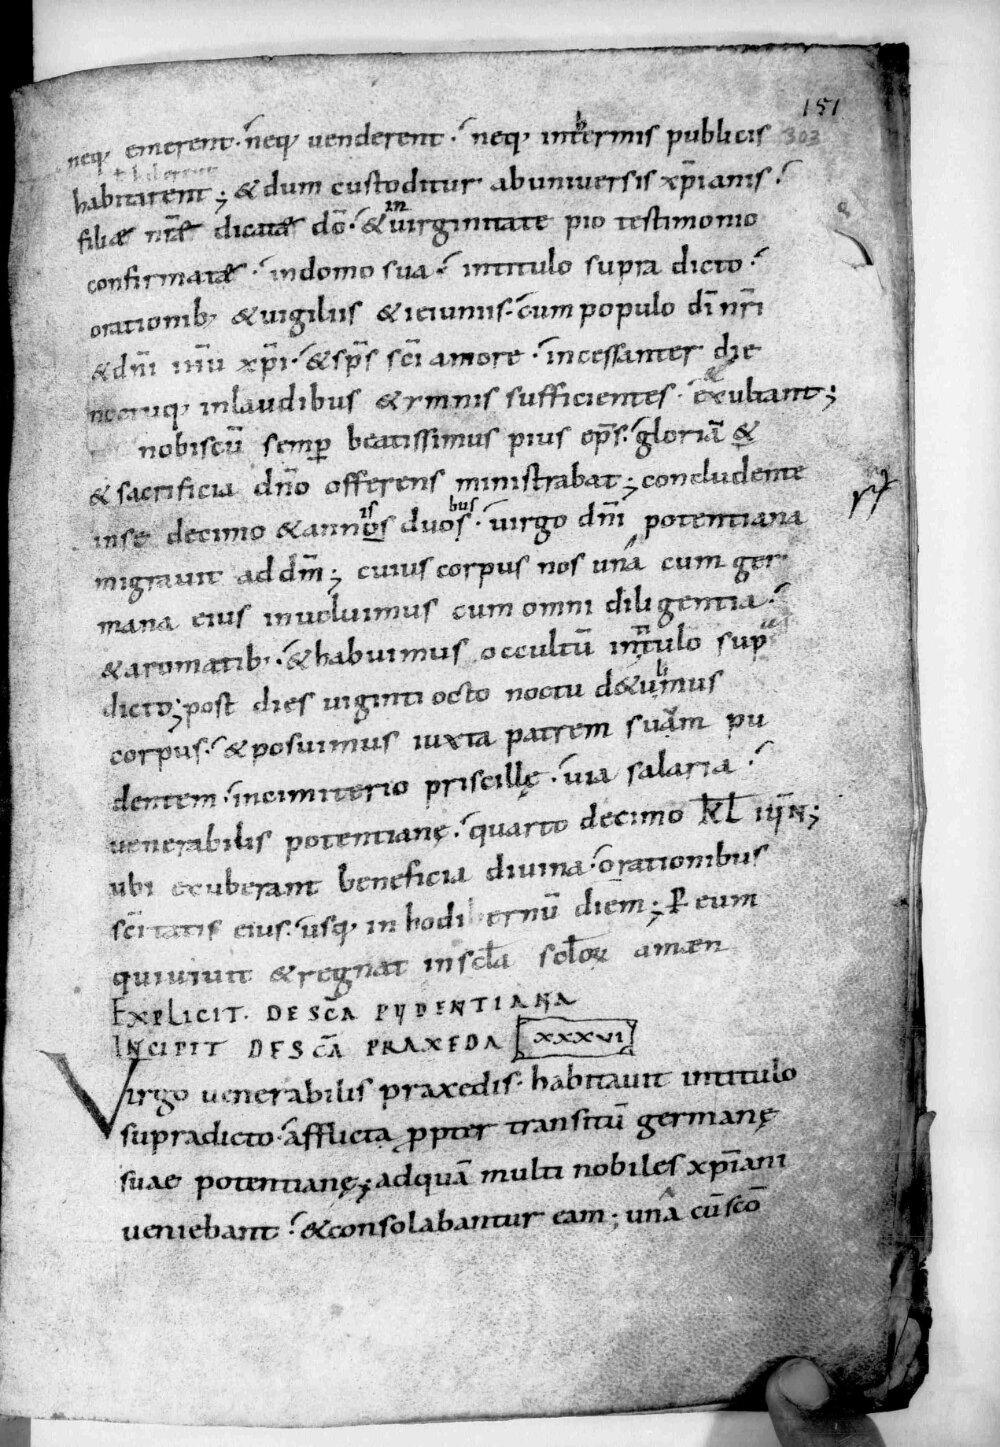 151
303
neq; emerent · neq; uenderent · neq; int&ermis publicis
habitarent; & dum custoditur ab uniuersis xp̄ianis ·
filiæ nr̄æ dicatæ dō · & in uirginitate pio testimonio
confirmatæ · in domo sua · in titulo supra dicto ·
orationib; & uigiliis & ieiuniis · cum populo dī nr̄i
& dn̄i ihū xp̄i · & sp̄s sc̄i amore · incessanter die
noctuq; in laudibus & ymnis sufficientes · exultant;
nobiscū semꝑ beatissimus pius ep̄s · gloriā &
& sacrificia dn̄o offerens ministrabat; concludente
in se decimo & annos is duos bus · uirgo dn̄i potentiana
migrauit ad dm̄; cuius corpus nos una cum ger
mana eius inuoluimus cum omni diligentia ·
& aromatib; · & habuimus occultū in titulo sup
dicto; post dies uiginti octo noctu d&ulimus
corpus · & posuimus iuxta patrem suam pu
dentem · in cimiterio priscillę · uia salaria ·
uenerabilis potentianę · quarto decimo kl iun̄;
ubi exuberant beneficia diuina · orationibus
sc̄itatis eius · usq; in hodiernū diem; ꝑ eum
qui uiuit & regnat in scła scłoꝝ amæn
EXPLICIT · DE SC̄A PUDENTIANA
INCIPIT DE SC̄A PRAXEDA XXXVI
Virgo uenerabilis praxedis · habitauit in titulo
supradicto · afflicta ꝓpter transitū germanę
suae potentianę; ad quā multi nobiles xp̄iani
ueniebant · & consolabantur eam; una cū sc̄o